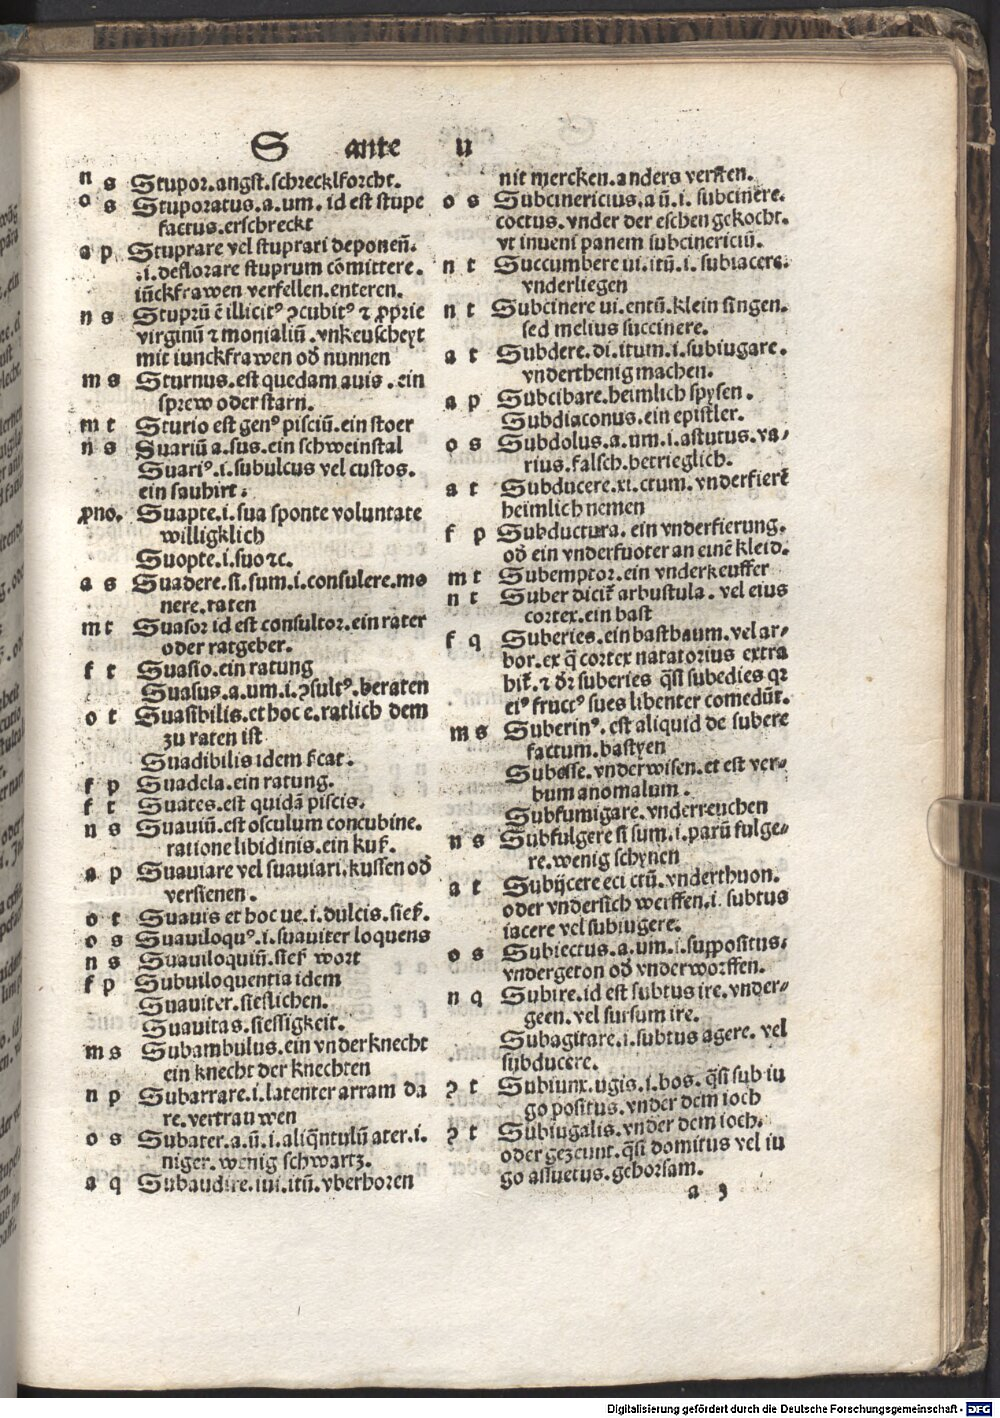 S ante u
n s Stupor.angst.schrecklforcht.
o s Stuporatus.a.um. id est stupe
factus.erschreckt
a p Stuprare vel stuprari deponen̄.
.i.deflorare stuprum cōmittere.
iūckfrawen verfellen.enteren.
n s Stuprū ē illicitꝰ ꝯcubitꝰ ⁊ ꝓprie
virginū ⁊ monialiū.vnkeuscheyt
mit iunckfrawen od̄ nunnen
m s Sturnus.est quedam auis.ein
sprew oder starn.
m t Sturio est genꝰ pisciū.ein stoer
n s Suariū a.sus.ein schweinstal
Suariꝰ.i.subulcus vel custos.
ein sauhirt.
ꝓno. Suapte.i.sua sponte voluntate
willigklich
Suopte.i.suo ⁊c.
a s Suadere.si.sum.i.consulere.mo
nere.raten
m t Suasor id est consultor.ein rater
oder ratgeber.
f t Suasio.ein ratung
Suasus.a.um.i.ꝯsultꝰ.beraten
o t Suasibilis.et hoc e.ratlich dem
zu raten ist
Suadibilis idem
f p Suadela.ein ratung.
f t Suates.est quidā piscis.
n s Suauiū.est osculum concubine.
ratione libidinis.ein kuß.
a p Suauiare vel suauiari.kussen od̄
versienen.
o t Suauis et hoc ue.i.dulcis.sieß.
o s Suauiloquꝰ.i.suauiter loquens
n s Suauiloquiū.sieß wort
f p Subuiloquentia idem
Suauiter.sieslichen.
Suauitas.siessigkeit.
m s Subambulus.ein vnderknecht
ein knecht der knechten
n p Subarrare.i.latenter arram da
re.vertrauwen
o s Subater.a.ū.i.aliq̄ntulū ater.i.
niger.wenig schwartz.
a q Subaudire.iui.itū.vberhoren
nit mercken.anders versten.
o s Subcinericius.a ū.i.subcinere.
coctus.vnder der eschen gekocht.
vt inueni panem subcinericiū.
n t Succumbere ui.itū.i.subiacere.
vnderliegen
n t Subcinere ui.entū.klein singen.
sed melius succinere.
a t Subdere.di.itum.i.subiugare.
vnderthenig machen.
a p Subcibare.heimlich spysen.
Subdiaconus.ein epistler.
o s Subdolus.a.um.i.astutus.va-
rius.falsch.betrieglich.
a t Subducere.xi.ctum.vnderfierē
heimlich nemen
f p Subductura.ein vnderfierung.
od̄ ein vnderfuoter an einē kleid.
m t Subemptor.ein vnderkeuffer
n t Suber dicit᷑ arbustula.vel eius
cortex.ein bast
f q Suberies.ein bastbaum.vel ar-
bor.ex q̄ cortex natatorius extra
hit᷑.⁊ dr̄ suberies q̄si subedies qꝛ
eiꝰ fructꝰ sues libenter comedūt.
m s Suberinꝰ.est aliquid de subere
factum.bastyen
Subesse.vnderwisen.et est ver-
bum anomalum.
Subfumigare.vnderreuchen
n s Subfulgere si sum.i.parū fulge-
re.wenig schynen
a t Subijcere eci ctū.vnderthuon.
oder vndersich werffen.i.subtus
iacere vel subiugere.
o s Subiectus.a.um.i.suppositus.
vndergeton od̄ vnderworffen.
n q Subire.id est subtus ire.vnder-
geen.vel sursum ire.
Subagitare.i.subtus agere.vel
subducere.
ꝯ t Subiunx.ugis.i.bos.q̄si sub iu
go positus.vnder dem ioch
ꝯ t Subiugalis.vnder dem ioch.
oder gezeunt.q̄si domitus vel iu
go assuetus.gehorsam.
a
Digitalisierung gefördert durch die Deutsche Forschungsgemeinschaft - DFG